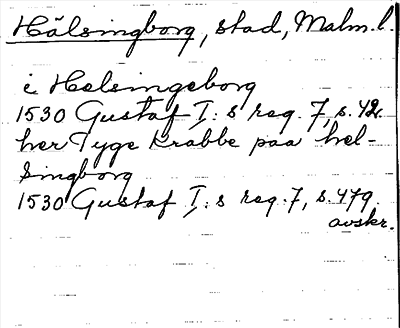 Hälsingborg, stad, Malm.l.
i Helsingeborg
1530 Gustaf I:s reg. 7, s. 42.
her Tyge Krabbe paa hel-
singborg
1530 Gustaf I:s reg. 7, s. 479.
avskr.